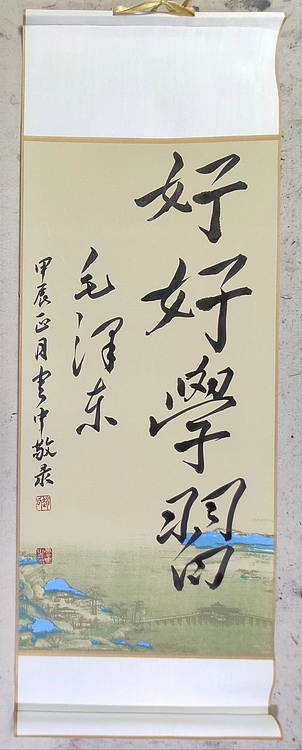 好好學習
毛泽东
甲辰正月书中敬录